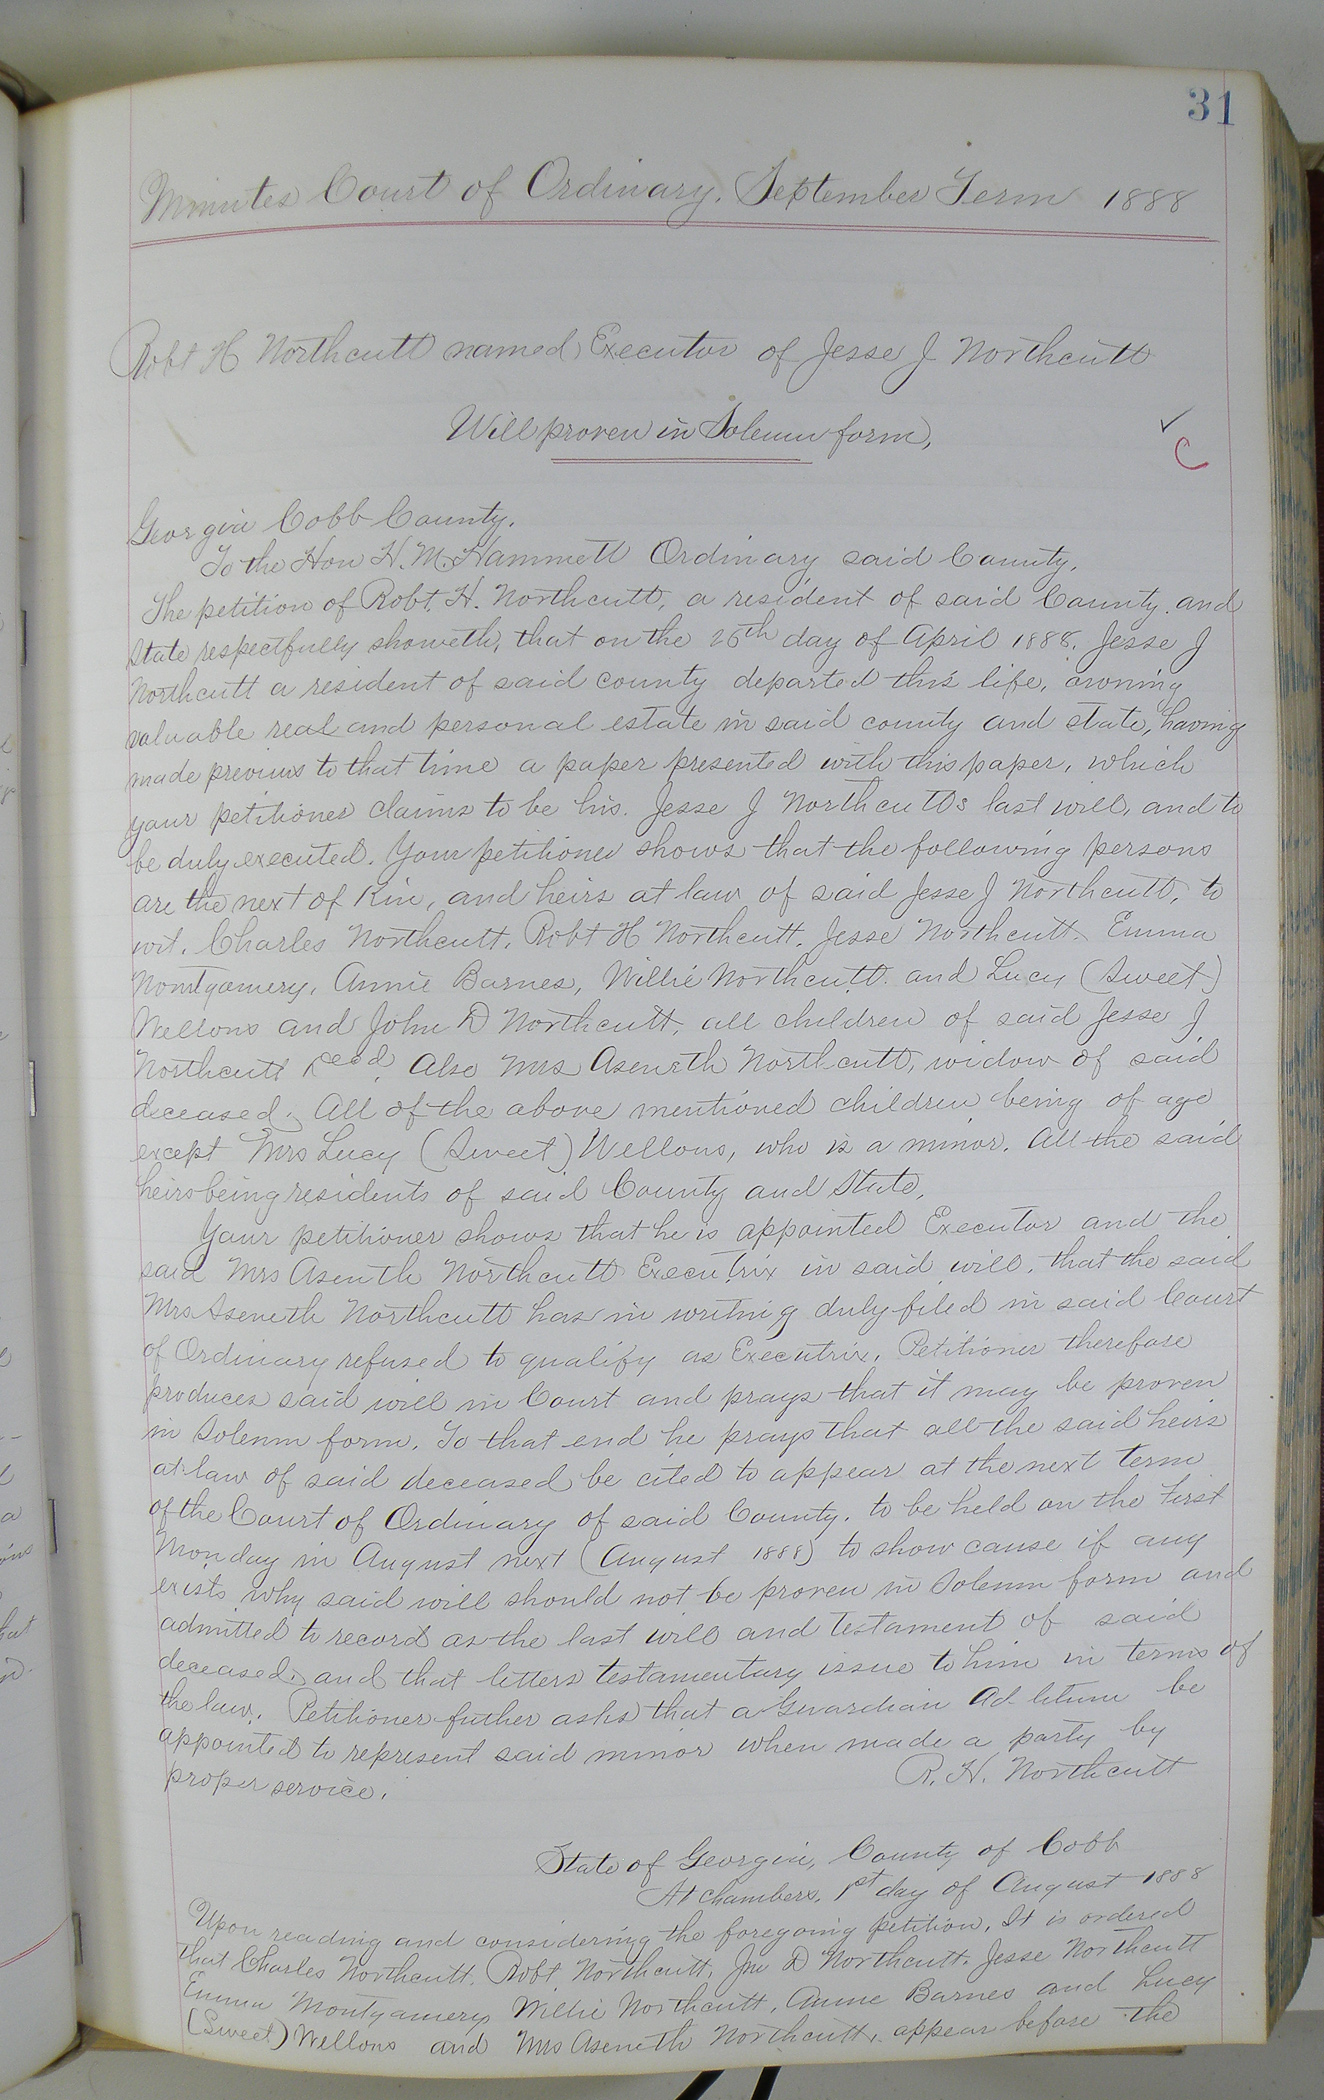 31
Minutes Court of Ordinary. September Term 1888
Robt H Northcutt named Executor of Jesse J Northcutt
Will proven in Solemn form,
✓
C
Georgia Cobb County.
To the Hon H. M. Hammett Ordinary said County.
The petition of Robt. H. Northcutt, a resident of said County. and
State respectfully showeth, that on the 26th day of April 1888. Jesse J
Northcutt a resident of said county departed this life, owning
valuable real and personal estate in said county and state, having
made previous to that time a paper presented with this paper, which
your petitioner claims to be his. Jesse J Northcutts last will, and to
be duly executed. Your petitioner shows that the following persons
are the next of Kin, and heirs at law of said Jesse J Northcutt, to
wit. Charles Northcutt. Robt H Northcutt. Jesse Northcutt. Emma
Montgomery, Annie Barnes, Willie Northcutt. and Lucy (Sweet)
Wellons and John D Northcutt, all children of said Jesse J
Northcutt Decd. Also Mrs Aseneth Northcutt, widow of said
deceased. All of the above mentioned children being of age
except Mrs Lucy (Sweet) Wellons, who is a minor. All the said
heirs being residents of said County and State.
Your petitioner shows that he is appointed Executor and the
said Mrs Aseneth Northcutt Executrix in said will. that the said
Mrs Aseneth Northcutt has in writing duly filed in said Court
of Ordinary refused to qualify as Executrix. Petitioner therefore
produces said will in Court and prays that it may be proven
in Solemn form. To that end he prays that all the said heirs
at law of said deceased be cited to appear at the next term
of the Court of Ordinary of said County. to be held on the first
Monday in August next (August 1888) to show cause if any
exists why said will should not be proven in Solemn form and
admitted to record as the last will and testament of said
deceased. and that letters testamentary issue to him in terms of
the law. Petitioner futher asks that a Guardian Ad-litum be
appointed to represent said minor when made a party by
proper service.
R. H. Northcutt
State of Georgia, County of Cobb
At chambers. 1st day of August 1888
Upon reading and considering the foregoing petition. It is ordered
that Charles Northcutt. Robt Northcutt. Jno D Northcutt. Jesse Northcutt
Emma Montgomery Willie Northcutt. Annie Barnes and Lucy
(Sweet) Wellons and Mrs Aseneth Northcutt, appear before the